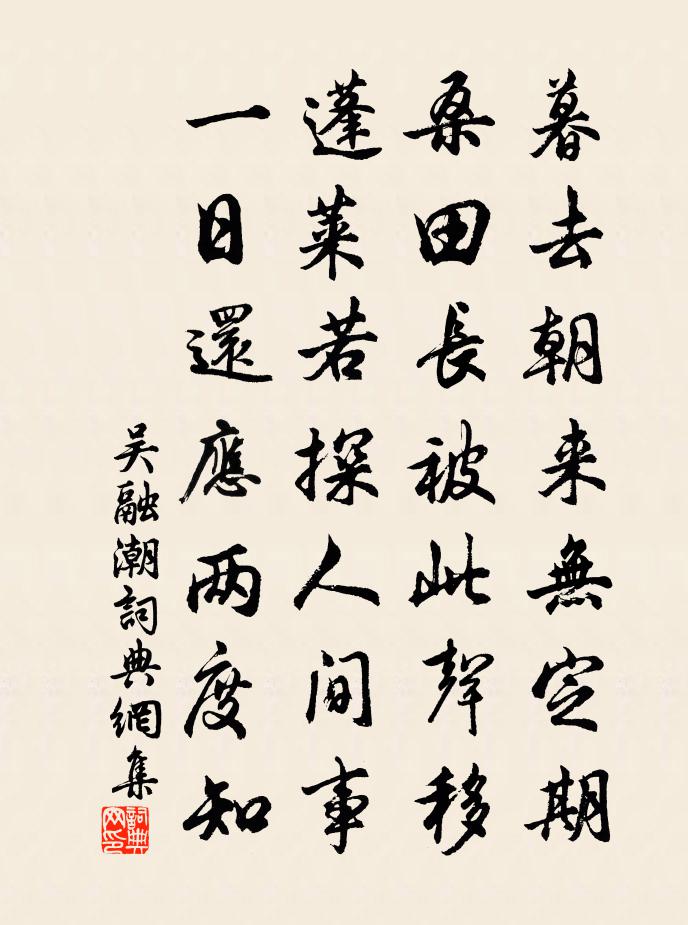 暮去朝来無定期
桑田長被此聲移
蓬萊若探人间事
一日還應两度知
吳融潮詞典網集
詞典网印